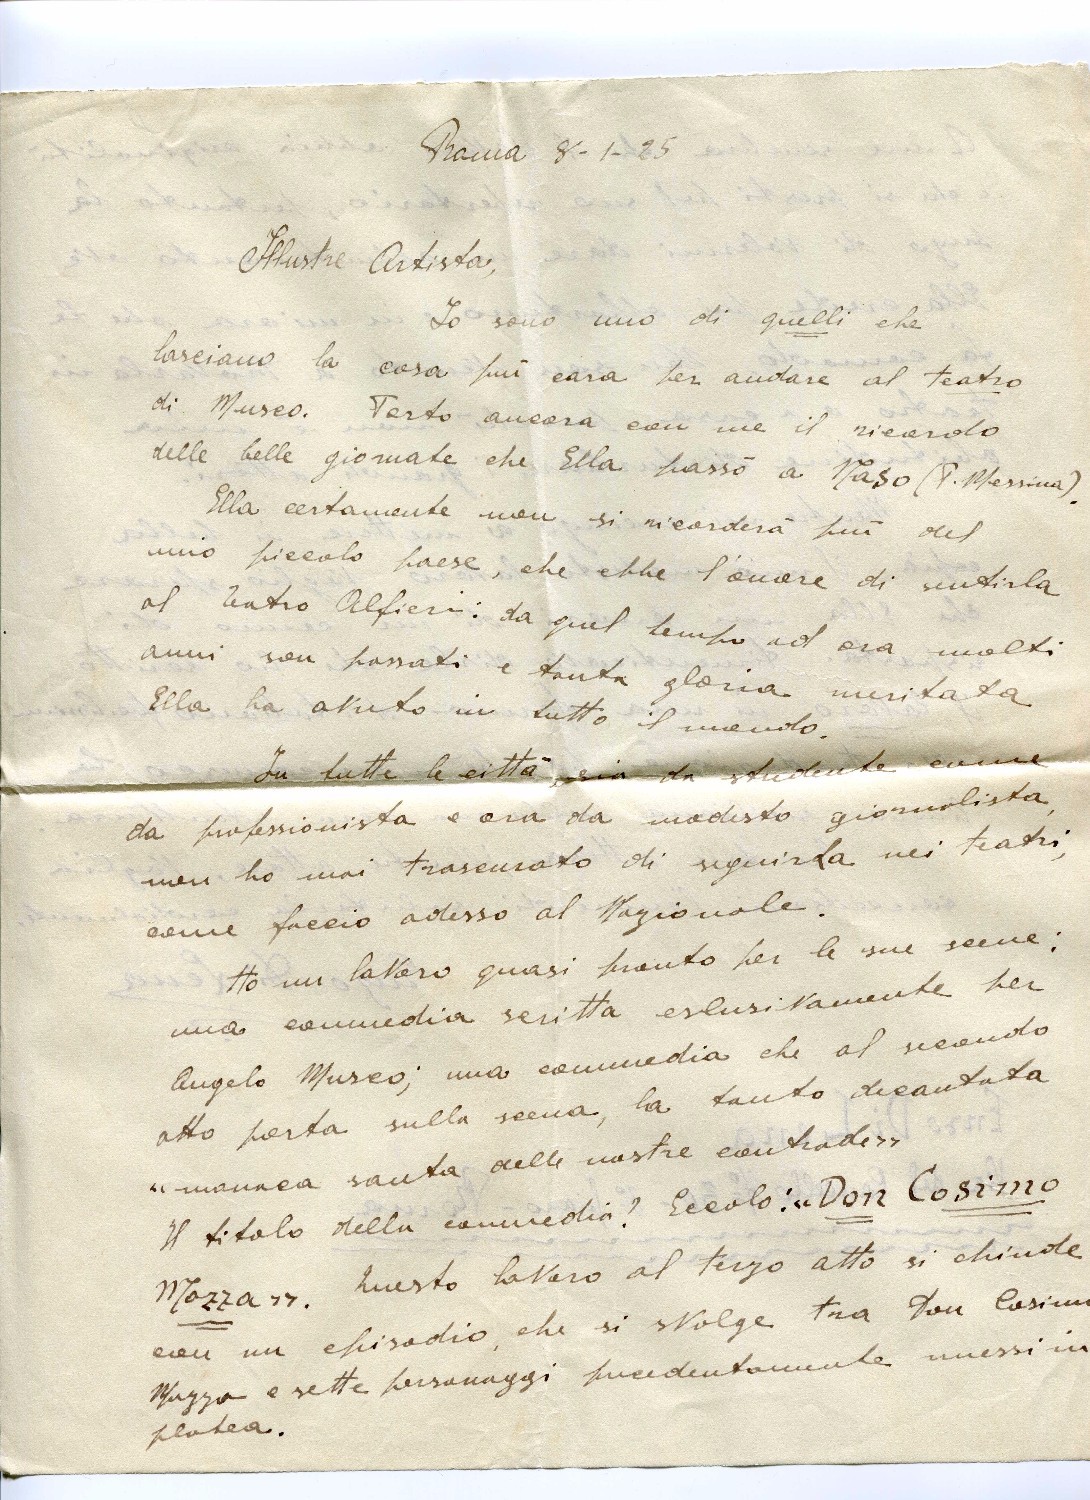 Roma 8-1-25
Illustre Artista,
Io sono uno di quelli che
lasciano la cosa più cara per andare al teatro
di Musco. Porto ancora con me il ricordo
delle belle giornate che Ella passò a Naso (P. Messina).
Ella certamente non si ricorderà più del
mio piccolo paese, che ebbe l'onore di sentirla
al Teatro Alfieri: da quel tempo ad ora molti
anni son passati e tanta gloria meritata
Ella ha avuto in tutto il mondo.
In tutte le città, sia da studente come
da professionista e ora da modesto giornalista,
non ho mai trascurato di seguirla nei teatri,
come faccio adesso al Nazionale.
Ho un lavoro quasi pronto per le sue scene:
una commedia scritta eslusivamente per
Angelo Musco; una commedia che al secondo
atto porta sulla scena, la tanto decantata
"monaca santa delle nostre contrade"
Il titolo della commedia? Eccolo: "Don Cosimo
Mazza". Questo lavoro al terzo atto si chiude
con un episodio, che si svolge tra Don Cosimo
Mazza e sette personaggi precedentemente messi in
platea.